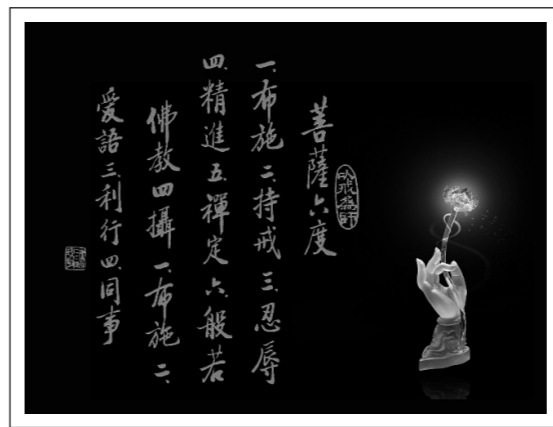 菩薩六度
一、布施二、持戒三、忍辱
四、精進五、禪定六、般若
佛教四攝一、布施二、
愛語三、利行四、同事
以戒為師